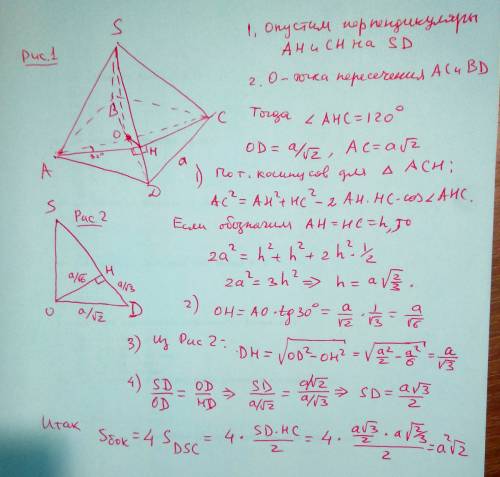 Рис.1
S
B
O
H
C
A
30°
D
a
S
Рис 2
H
a/√6
a/√3
O
a/√2
D
1. Опустим перпендикуляры
AH и CH на SD
2. O-точка пересечения AC и BD
Тогда ∠AHC=120°
OD=a/√2, AC=a√2
1) По т. косинусов для △ACH:
AC²=AH²+HC²-2AH·HC·cos∠AHC.
Если обозначим AH=HC=h, то
2a²=h²+h²+2h²·1/2
2a²=3h² ⇒ h=a√(2/3).
2) OH=AO·tg30°=a/√2·1/√3=a/√6
3) Из Рис 2: DH=√(OD²-OH²)=√(a²/2-a²/6)=a/√3
4) SD/OD=OD/HD ⇒ SD/(a/√2)=(a/√2)/(a/√3) ⇒ SD=a√3/2
Итак Sбок=4 S_DSC=4·SD·HC/2=4·(a√3/2·a√(2/3))/2=a²√2